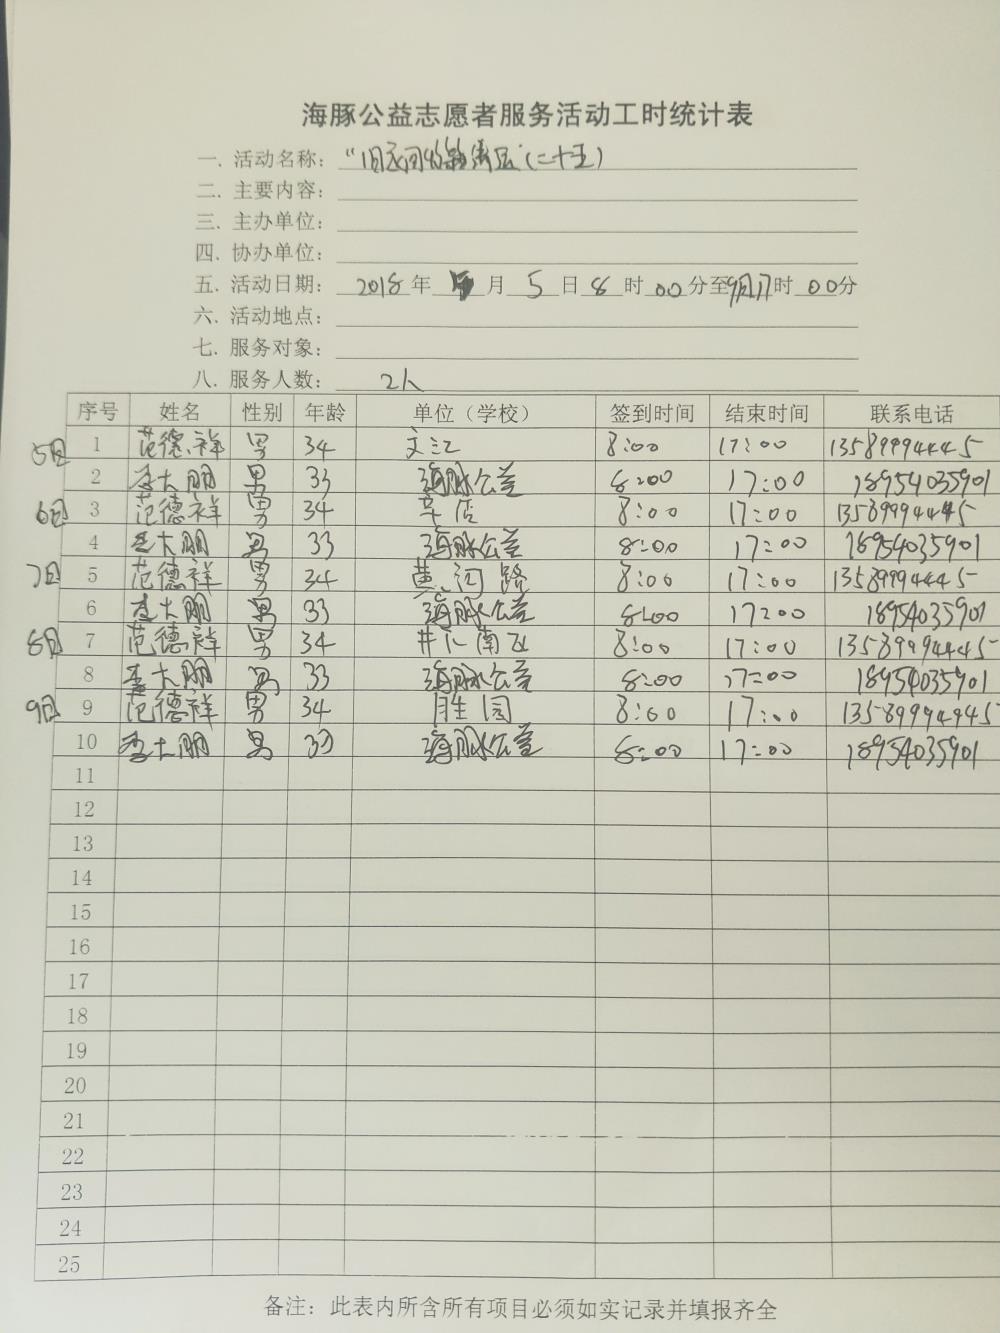 海豚公益志愿者服务活动工时统计表
一. 活动名称: (二十五)
二. 主要内容:
三. 主办单位:
四. 协办单位:
五. 活动日期: 2018年 月 5 日 8 时 00分至9日17时 00分
六. 活动地点:
七. 服务对象:
八. 服务人数: 2人
序号 姓名 性别 年龄 单位（学校） 签到时间 结束时间 联系电话
5日 1 范德祥 男 34 文汇 8:00 17:00 13589994445
2 李大朋 男 33 海豚公益 8:00 17:00 18954035901
6日 3 范德祥 男 34 辛店 8:00 17:00 13589994445
4 李大朋 男 33 海豚公益 8:00 17:00 18954035901
7日 5 范德祥 男 34 黄河路 8:00 17:00 13589994445
6 李大朋 男 33 海豚公益 8:00 17:00 18954035901
8日 7 范德祥 男 34 8:00 17:00 13589994445
8 李大朋 男 33 海豚公益 8:00 17:00 18954035901
9日 9 范德祥 男 34 胜园 8:00 17:00 13589994445
10 李大朋 男 33 海豚公益 8:00 17:00 18954035901
11
12
13
14
15
16
17
18
19
20
21
22
23
24
25
备注: 此表内所含所有项目必须如实记录并填报齐全